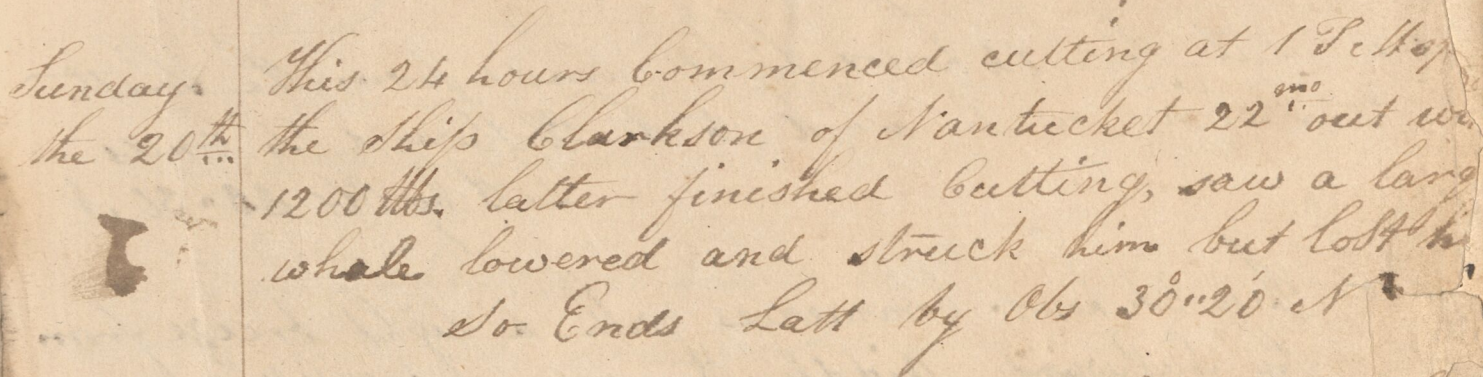 Sunday This 24 hours Commenced cutting at 1 P.M
the 20th the Ship Clarkson of Nantucket 22mo out
1200 bbls. latter finished Cutting, saw a larg
whale lowered and struck him but lost h
So Ends Latt by Obs 30°"20' N